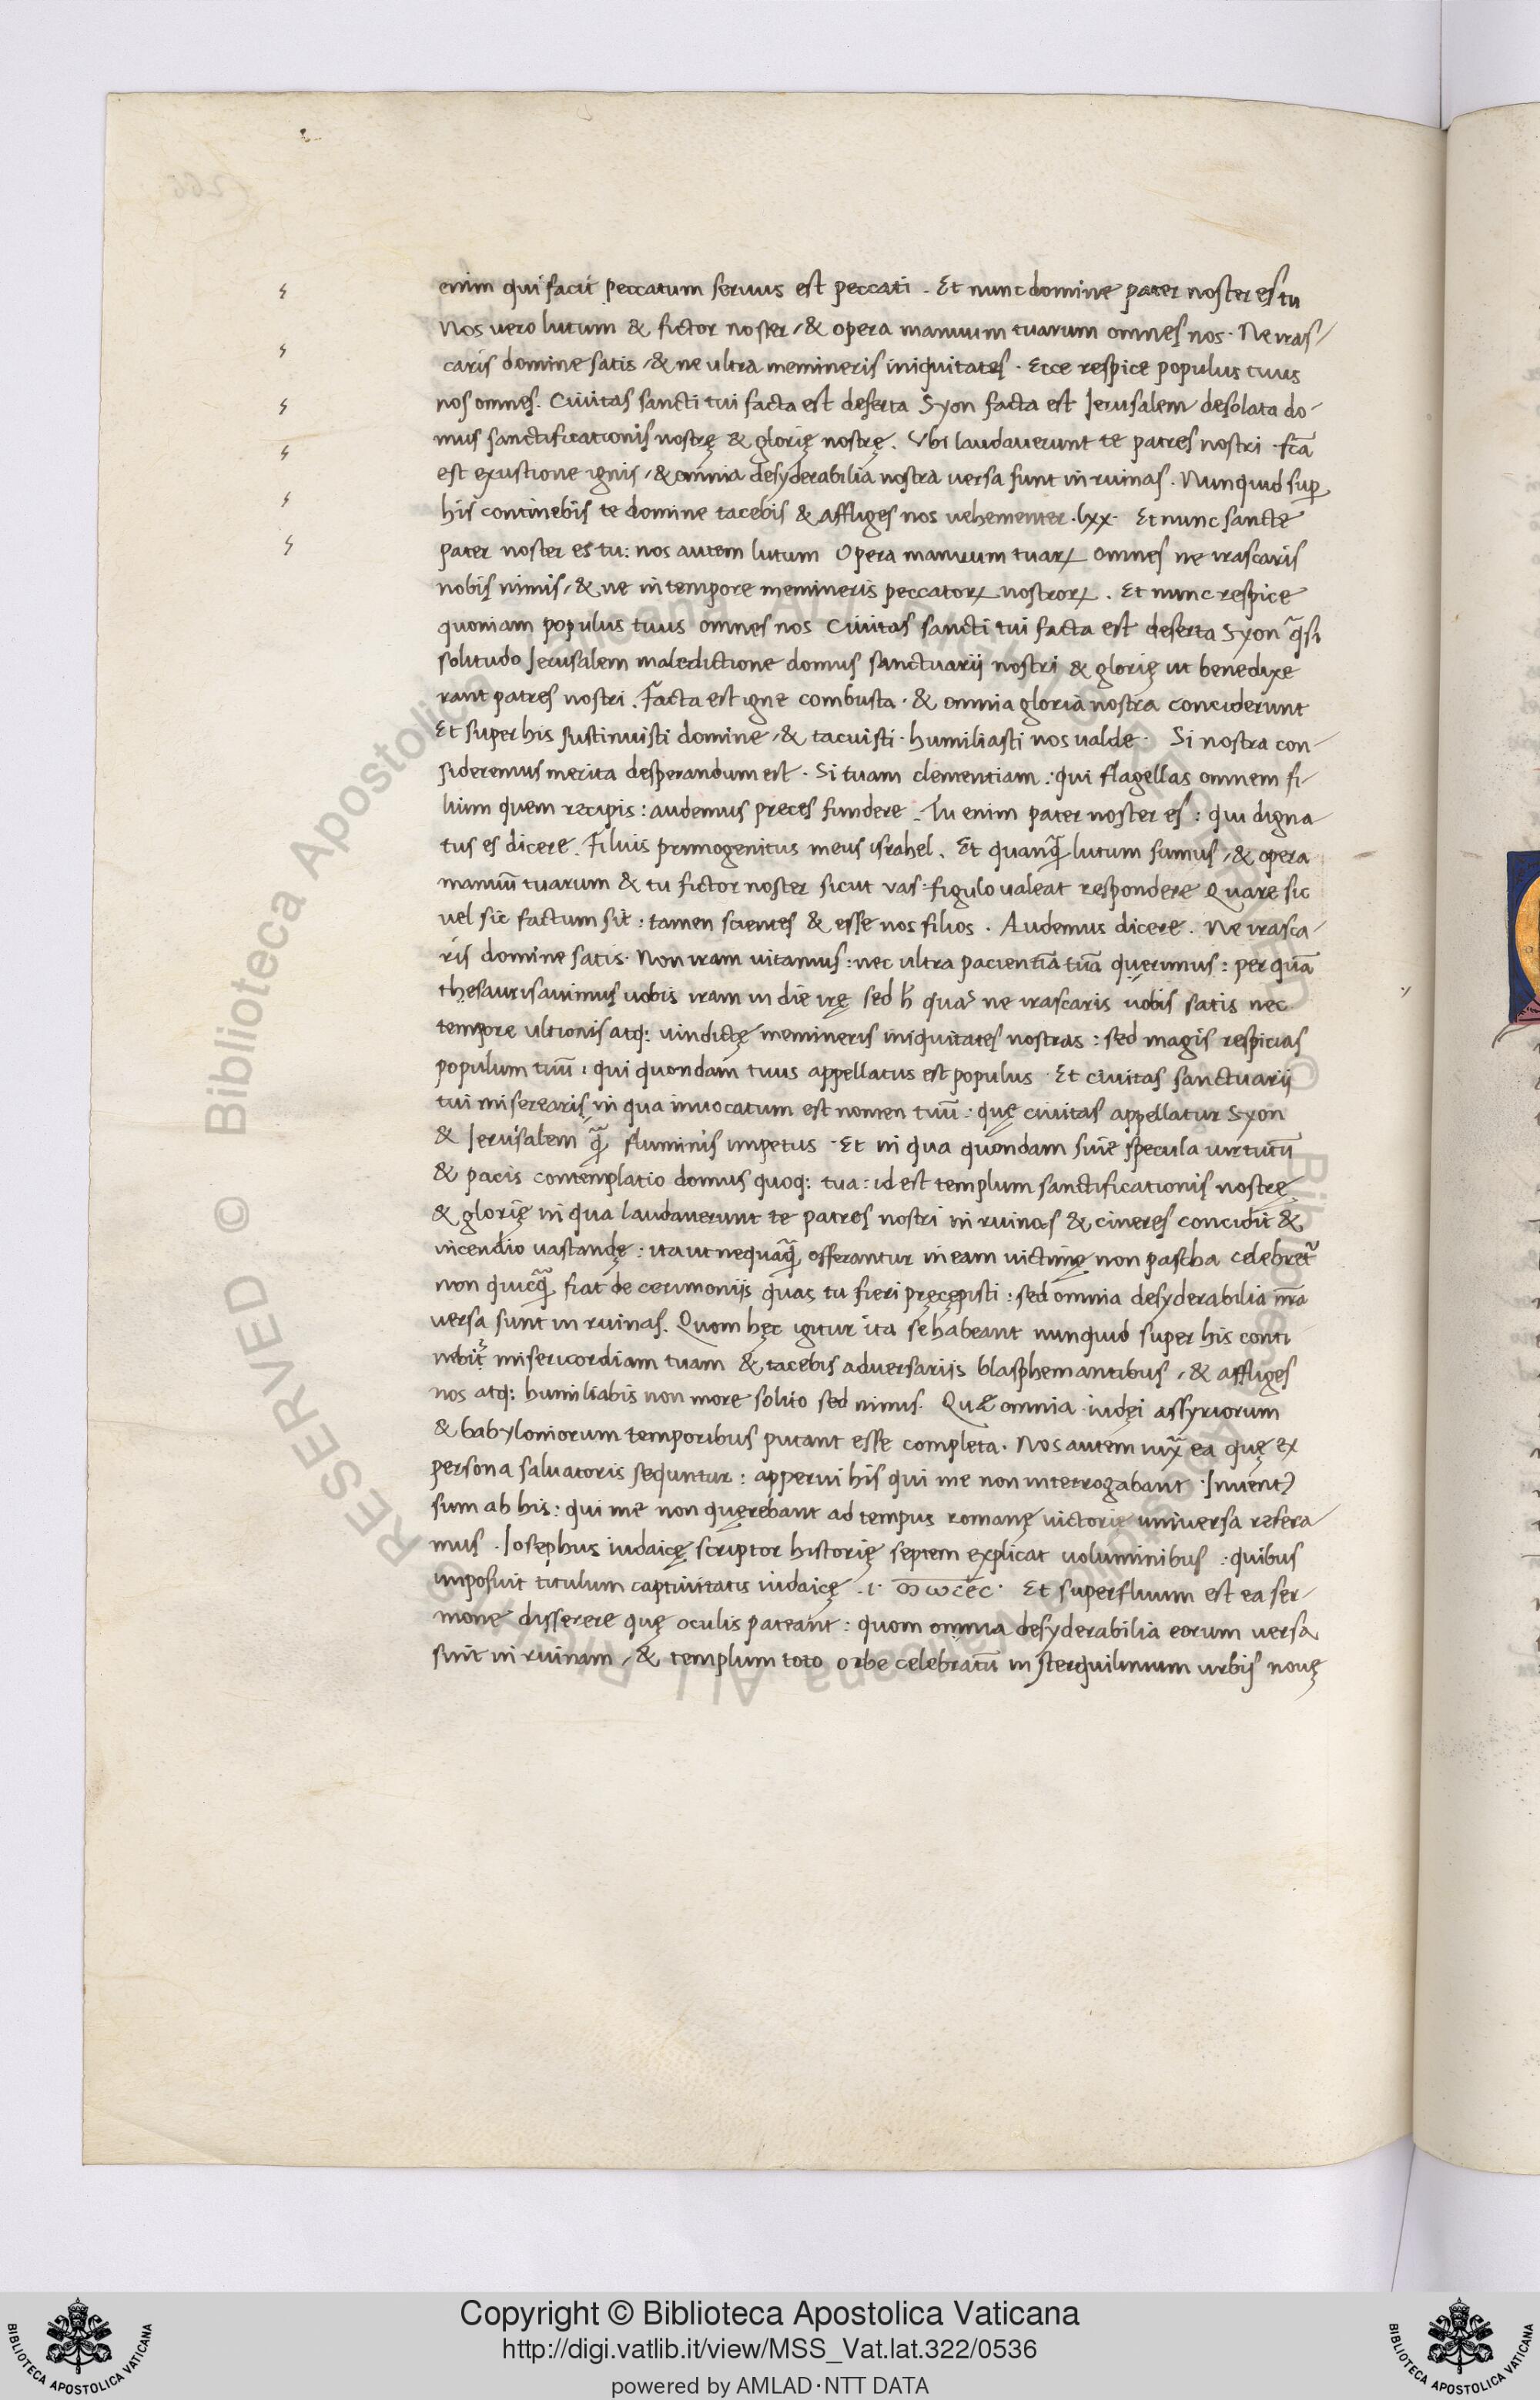 enim qui facit peccatum seruus est peccati . Et nunc domine pater noster es tu
Nos vero lutum & fictor noster / & opera manuum tuarum omnes nos . Ne iras/
caris domine satis / & ne ultra memineris iniquitates . Ecce respice populus tuus
nos omnes . Ciuitas sancti tui facta est deserta Syon facta est Jerusalem desolata do-
mus sanctificationis nostrę & glorię nostrę . Vbi laudauerunt te patres nostri . fc̄a
est exustione ignis / & omnia desyderabilia nostra uersa sunt in ruinas . Nunquid sup̱
his continebis te domine tacebis & affliges nos uehementer . lxx . Et nunc sancte
pater noster es tu : nos autem lutum Opera manuum tuaꝝ omnes ne irascaris
nobis nimis / & ne in tempore memineris peccatoꝝ nostroꝝ . Et nunc respice
quoniam populus tuus omnes nos Ciuitas sancti tui facta est deserta Syon q̃si
solitudo Jerusalem maledictione domus sanctuarij nostri & glorię ut benedixe
rant patres nostri . Facta est igne combusta . & omnia gloria nostra conciderunt
Et super his sustinuisti domine / & tacuisti . humiliasti nos ualde . Si nostra con-
sideremus merita desperandum est . Si tuam clementiam : qui flagellas omnem fi-
lium quem recipis : audemus preces fundere . Tu enim pater noster es : qui digna
tus es dicere . Filius primogenitus meus israhel . Et quanq̃ lutum sumus / & opera
manuū tuarum & tu fictor noster sicut vas figulo ualeat respondere Quare sic
vel sic factum sit : tamen scientes & esse nos filios . Audemus dicere . Ne irasca-
ris domine satis . Non iram uitamus : nec ultra pacientiā tuā querimus : per quā
thesaurisauimus uobis iram in die irę sed h̄ ne irascaris uobis satis nec
tempore ultionis atq: uindictę memineris iniquitates nostras : sed magis respicias
populum tuū : qui quondam tuus appellatus est populus . Et ciuitas sanctuarij
tui miserearis in qua inuocatum est nomen tuū : quę ciuitas appellatur Syon
& Jerusalem q̃ fluminis impetus . Et in qua quondam specula uirtutū
& pacis contemplatio domus quoq: tua : id est templum sanctificationis nostrę
& glorię in qua laudauerunt te patres nostri in ruinas & cineres concidit &
incendio uastandę : ita ut nequaq̃ offerantur in eam uictimę non pascha celebret̃
non quicq̃ fiat de cerimonijs quas tu fieri pręcępisti : sed omnia desyderabilia nr̄a
versa sunt in ruinas . Quom hęc igitur ita se habeant nunquid super his conti
nebit᷑ misericordiam tuam & tacebis aduersariis blasphemantibus / & affliges
nos atq: humiliabis non more solito sed nimis . Quæ omnia iudęi assyriorum
& babyloniorum temporibus putant esse completa . Nos autem iux̃ ea quę ex
persona saluatoris sequntur : apperui his qui me non interrogabant . Inuentꝰ
sum ab his : qui me non quęrebant ad tempus romanę uictorie uniuersa refera
mus . Josephus iudaicę scriptor historię septem explicat uoluminibus : quibus
imposuit titulum captiuitatis iudaicę .i. Et superfluum est ea ser-
mone disserere quę oculis pateant : quom omnia desyderabilia eorum uersa
sint in ruinam / & templum toto orbe celebratū in sterquilinium urbis nouę
Copyright © Biblioteca Apostolica Vaticana
http://digi.vatlib.it/view/MSS_Vat.lat.322/0536
powered by AMLAD·NTT DATA